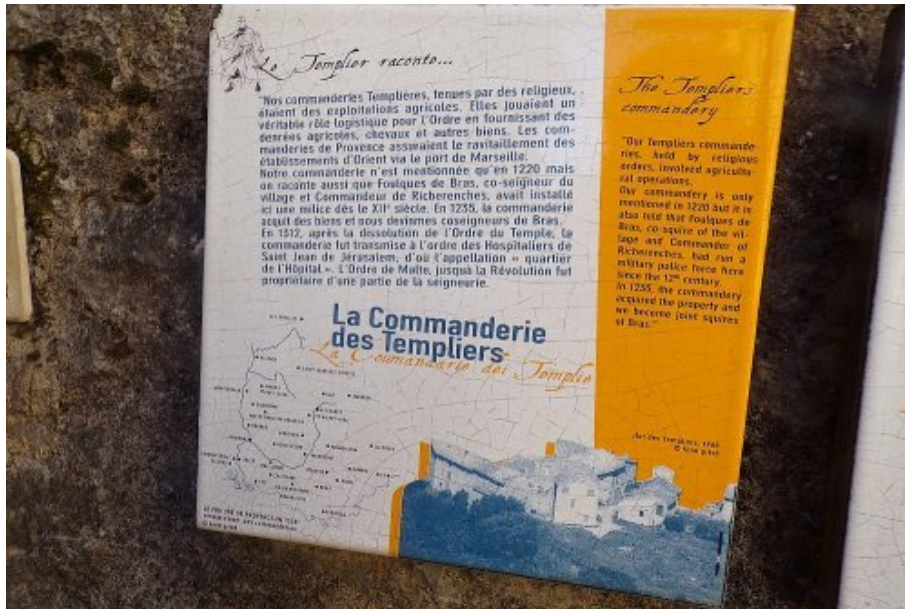 Le Templier raconte...
"Nos commanderies Templières, tenues par des religieux,
étaient des exploitations agricoles. Elles jouaient un
véritable rôle logistique pour l'Ordre en fournissant des
denrées agricoles, chevaux et autres biens. Les com-
manderies de Provence assuraient le ravitaillement des
établissements d'Orient via le port de Marseille.
Notre commanderie n'est mentionnée qu'en 1220 mais
on raconte aussi que Foulques de Bras, co-seigneur du
village et Commandeur de Richerenches, avait installé
ici une milice dès le XIIe siècle. En 1235, la commanderie
acquit des biens et nous devînmes coseigneurs de Bras.
En 1312, après la dissolution de l'Ordre du Temple, la
commanderie fut transmise à l'ordre des Hospitaliers de
Saint Jean de Jérusalem, d'où l'appellation « quartier
de l'Hôpital ». L'Ordre de Malte, jusqu'à la Révolution fut
propriétaire d'une partie de la seigneurie.
La Commanderie
des Templiers
La Coumandarié dei Templié
The Templiers
commandery
"Our Templiers commande-
ries, held by religious
orders, involved agricultu-
ral operations.
Our commandery is only
mentioned in 1220 but it is
also told that Foulques de
Bras, co-squire of the vil-
lage and Commander of
Richerenches, had run a
military police force here
since the 12th century.
In 1255, the commandery
acquired the property and
we become joint squires
of Bras."